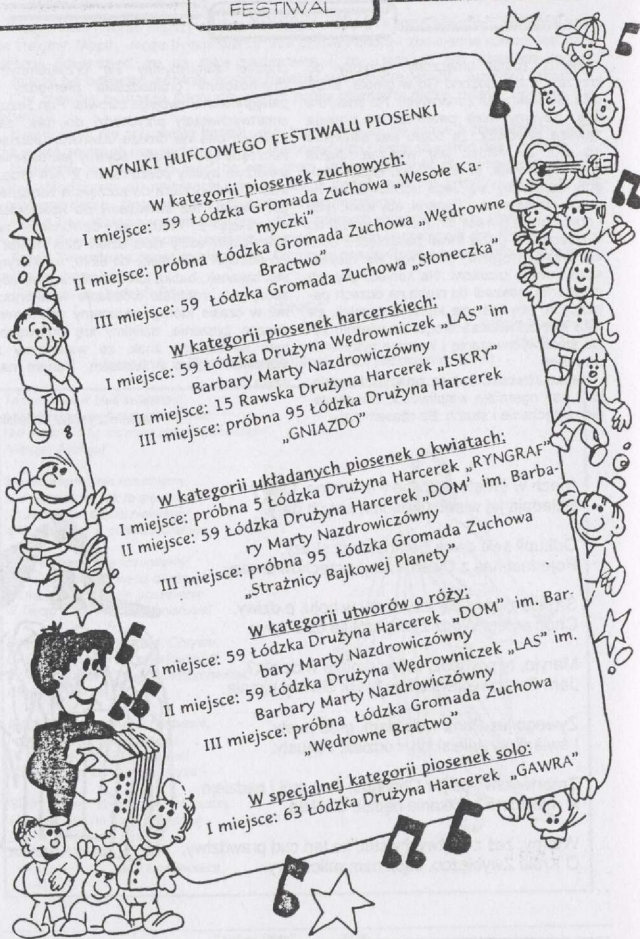 FESTIWAL
WYNIKI HUFCOWEGO FESTIWALU PIOSENKI
W kategorii piosenek zuchowych:
I miejsce: 59 Łódzka Gromada Zuchowa „Wesołe Ka-
myczki”
II miejsce: próbna Łódzka Gromada Zuchowa „Wędrowne
Bractwo”
III miejsce: 59 Łódzka Gromada Zuchowa „Słoneczka”
W kategorii piosenek harcerskich:
I miejsce: 59 Łódzka Drużyna Wędrowniczek „LAS” im
Barbary Marty Nazdrowiczówny
II miejsce: 15 Rawska Drużyna Harcerek „ISKRY”
III miejsce: próbna 95 Łódzka Drużyna Harcerek
„GNIAZDO”
W kategorii układanych piosenek o kwiatach:
I miejsce: próbna 5 Łódzka Drużyna Harcerek „RYNGRAF”
II miejsce: 59 Łódzka Drużyna Harcerek „DOM” im. Barba-
ry Marty Nazdrowiczówny
III miejsce: próbna 95 Łódzka Gromada Zuchowa
„Strażnicy Bajkowej Planety”
W kategorii utworów o róży:
I miejsce: 59 Łódzka Drużyna Harcerek „DOM” im. Bar-
bary Marty Nazdrowiczówny
II miejsce: 59 Łódzka Drużyna Wędrowniczek „LAS” im.
Barbary Marty Nazdrowiczówny
III miejsce: próbna Łódzka Gromada Zuchowa
„Wędrowne Bractwo”
W specjalnej kategorii piosenek solo:
I miejsce: 63 Łódzka Drużyna Harcerek „GAWRA”